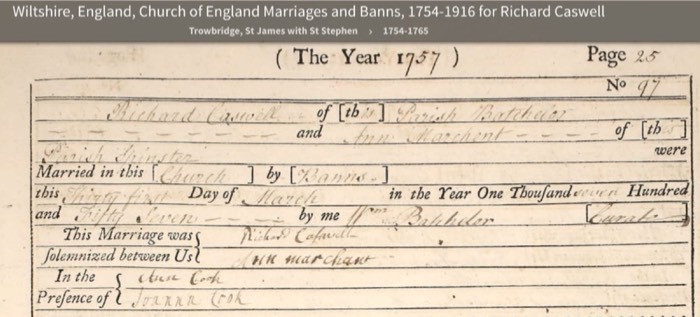 Wiltshire, England, Church of England Marriages and Banns, 1754-1916 for Richard Caswell
Trowbridge, St James with St Stephen › 1754-1765
( The Year 1757 ) Page 25
No 97
Richard Caswell of [this] Parish Batchelor
and Ann Marchent of [th ]
Parish Spinster were
Married in this [Church] by [Banns]
this Thirty first Day of March in the Year One Thouſand seven Hundred
and Fifty Seven by me Wm Batchelor [Curate]
This Marriage was {
ſolemnized between Us { Ann marchant
In the { Cook
Preſence of { Joanna Cook